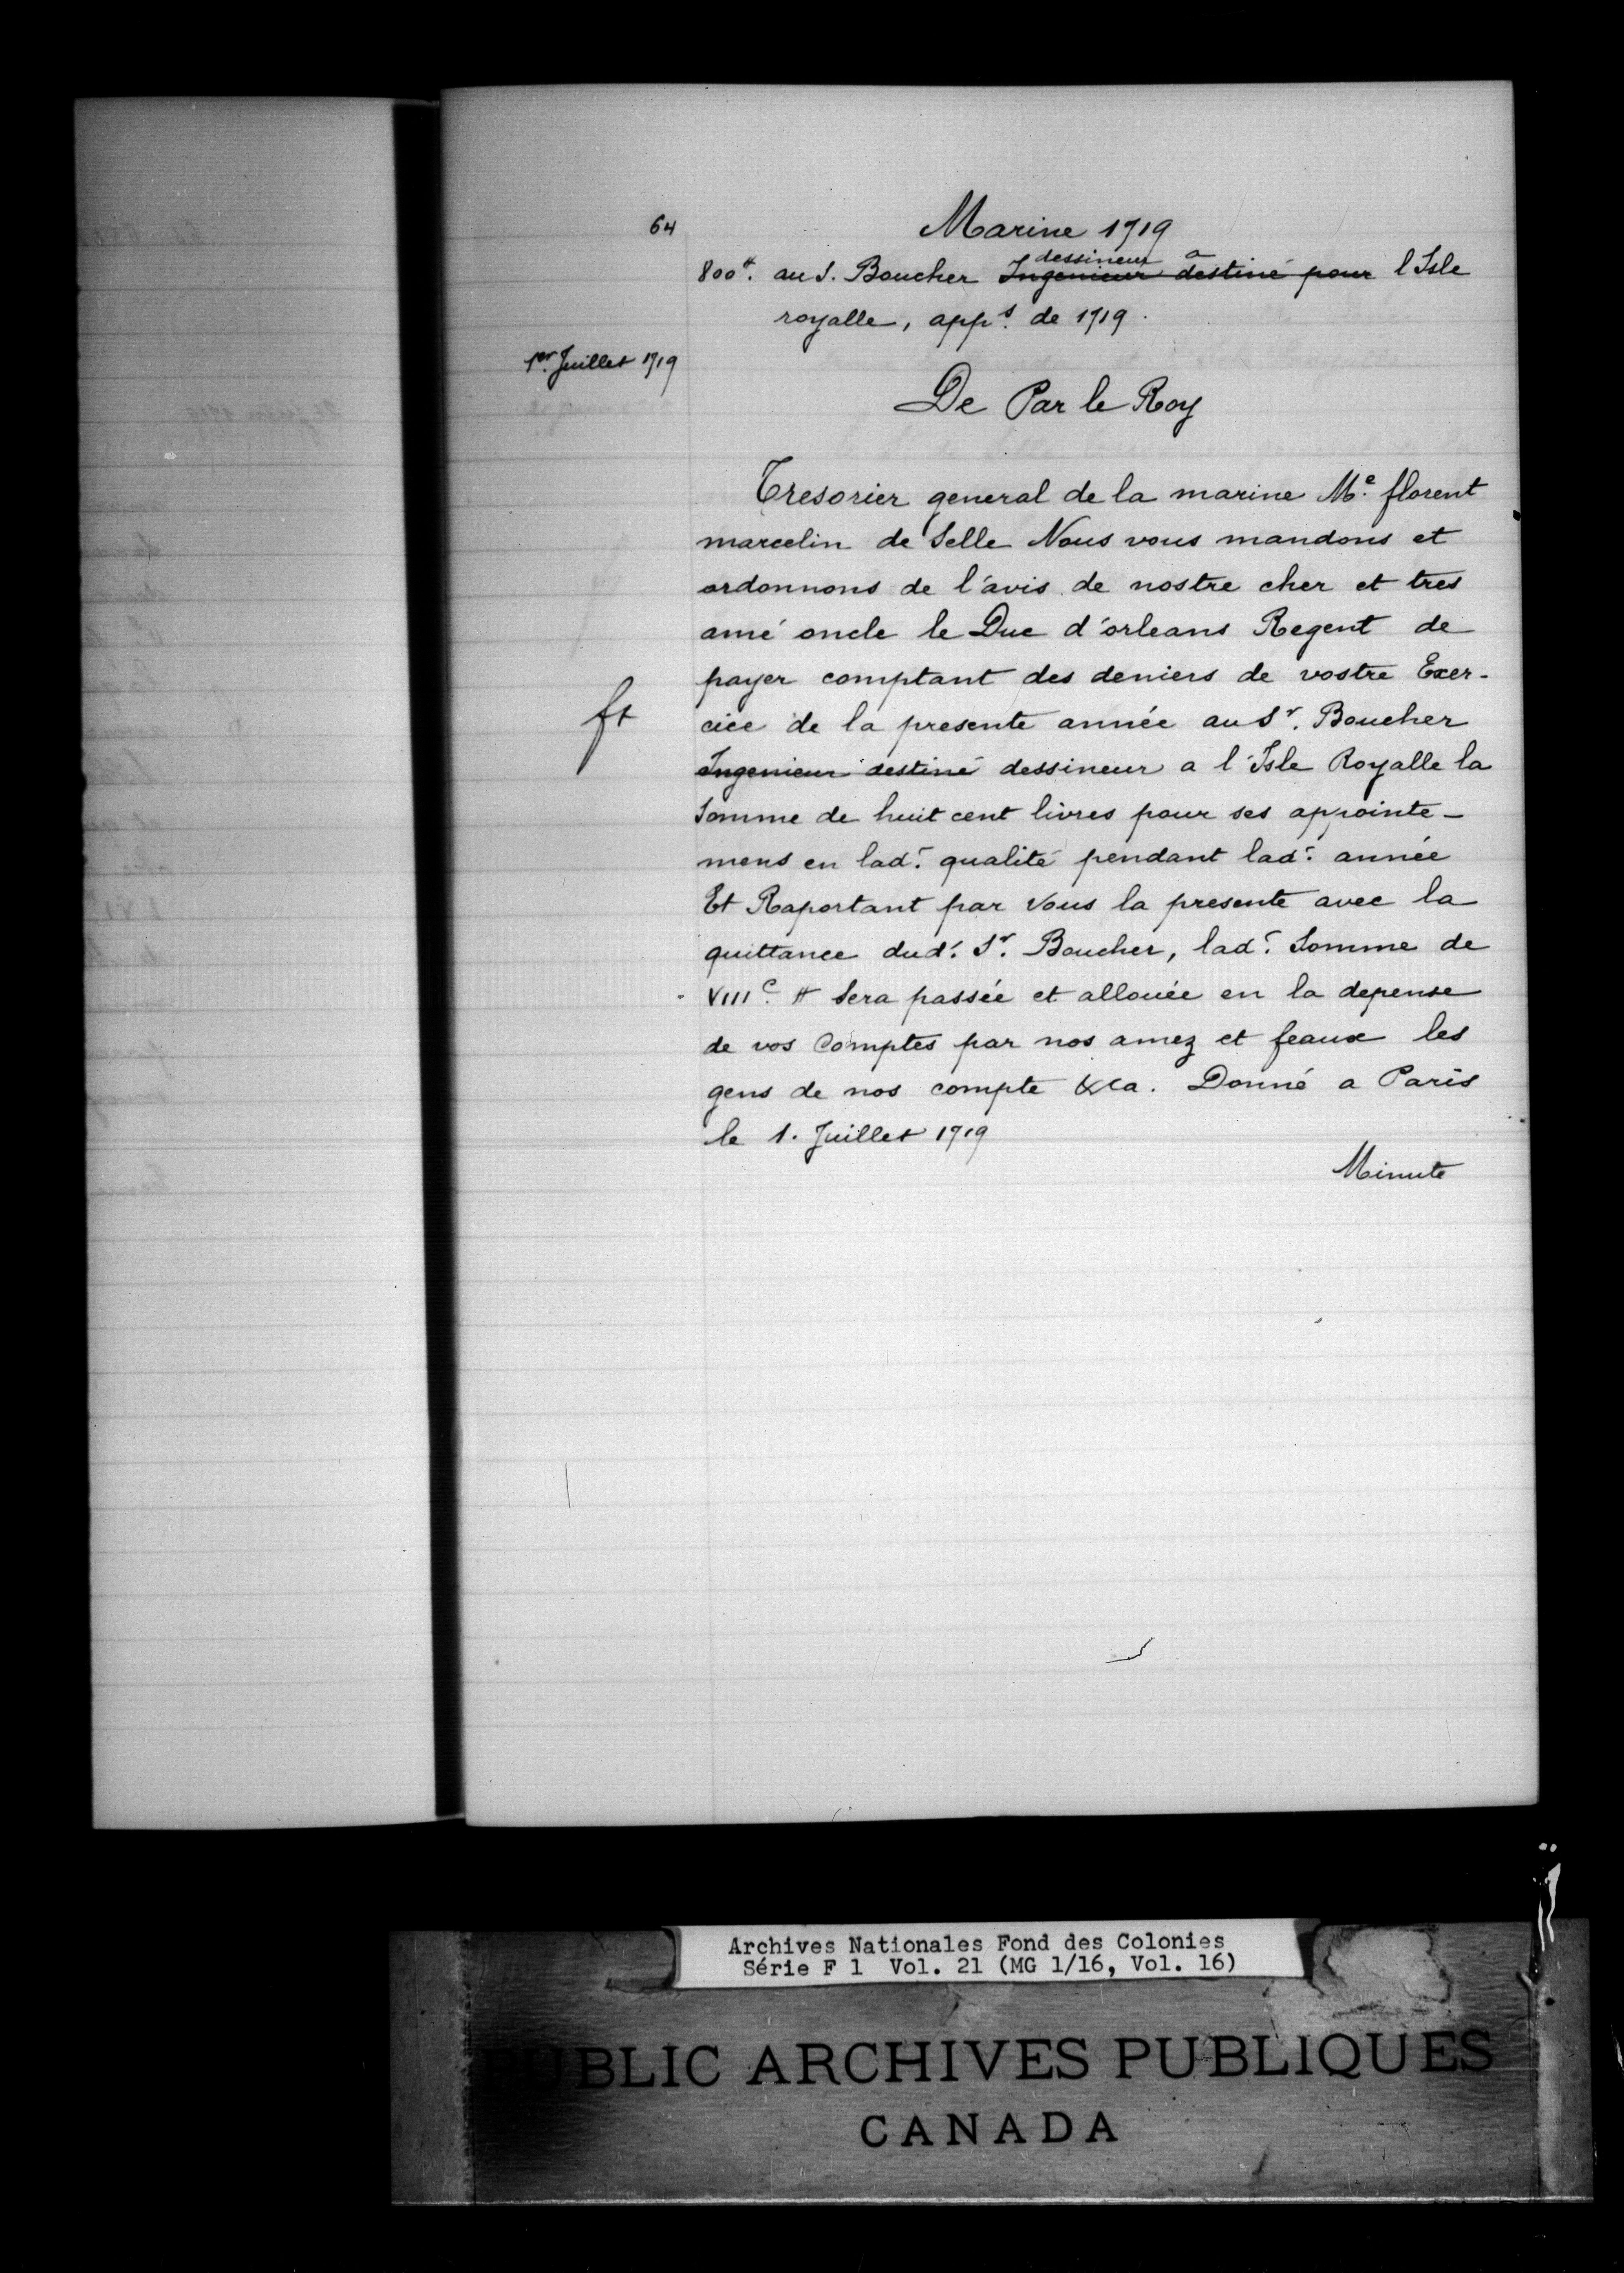 64
Marine 1719
dessineur a
800#. au S. Boucher Ingenieur destiné pour l Isle
royalle, app.s de 1719.
1er. Juillet 1719
De Par le Roy
Tresorier general de la marine M.e florent
marcelin de Selle Nous vous mandons et
ordonnons de l'avis de nostre cher et tres
amé oncle le Duc d'orleans Regent de
payer comptant des deniers de vostre Exer-
ft
cice de la presente année au Sr. Boucher
Ingenieur destiné dessineur a l'Isle Royalle la
Somme de huit cent livres pour ses appointe-
mens en lad. qualité pendant lad. année
Et Raportant par Vous la presente avec la
quittance dud. Sr. Boucher, lad. Somme de
VIIIc. # Sera passée et allouée en la depense
de vos Comptes par nos amez et feaux les
gens de nos compte &ca. Donné a Paris
le 1. Juillet 1719
Minute
Archives Nationales Fond des Colonies
Série F 1 Vol. 21 (MG 1/16, Vol. 16)
PUBLIC ARCHIVES PUBLIQUES
CANADA